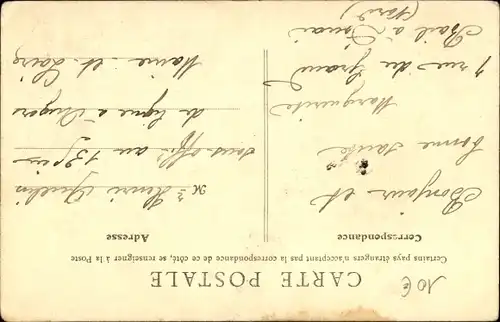 CARTE POSTALE
Certains pays étrangers n'acceptant pas la correspondance de ce côté, se renseigner à la Poste
Correspondance
Adresse
Bonjour et
bonne santé
Marguerite
7 rue du Grand
Bail à Douai
(Nord)
Mr Henri
sous-offic au 135e
de ligne à Angers
Maine et Loire
10€